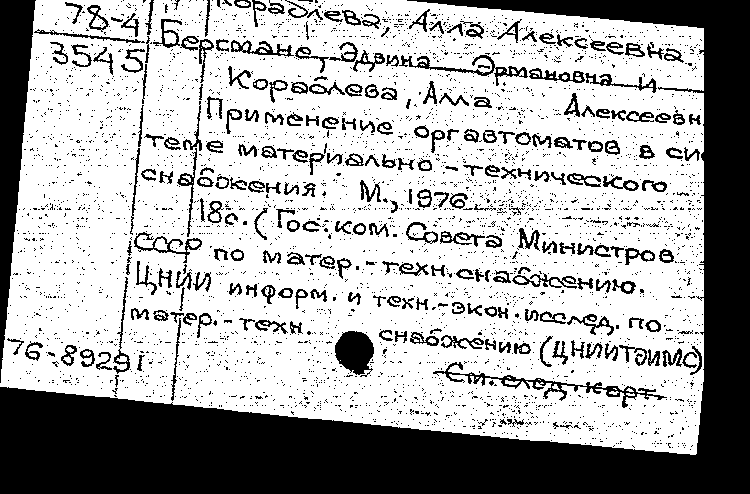 78-4
3545
Кораблева, Алла Алексеевна.
Берсмане, Эдвина Эрмановна и
Кораблева, Алла Алексеевн
Применение оргавтоматов в си
теме материально-технического
снабжения. М., 1976
18с. (Гос. ком. Совета Министров
СССР по матер.-техн. снабжению.
ЦНИИ информ. и техн.-экон. исслед. по
матер.-техн. снабжению (ЦНИИТЭИМС)
76-89291
См. след. карт.